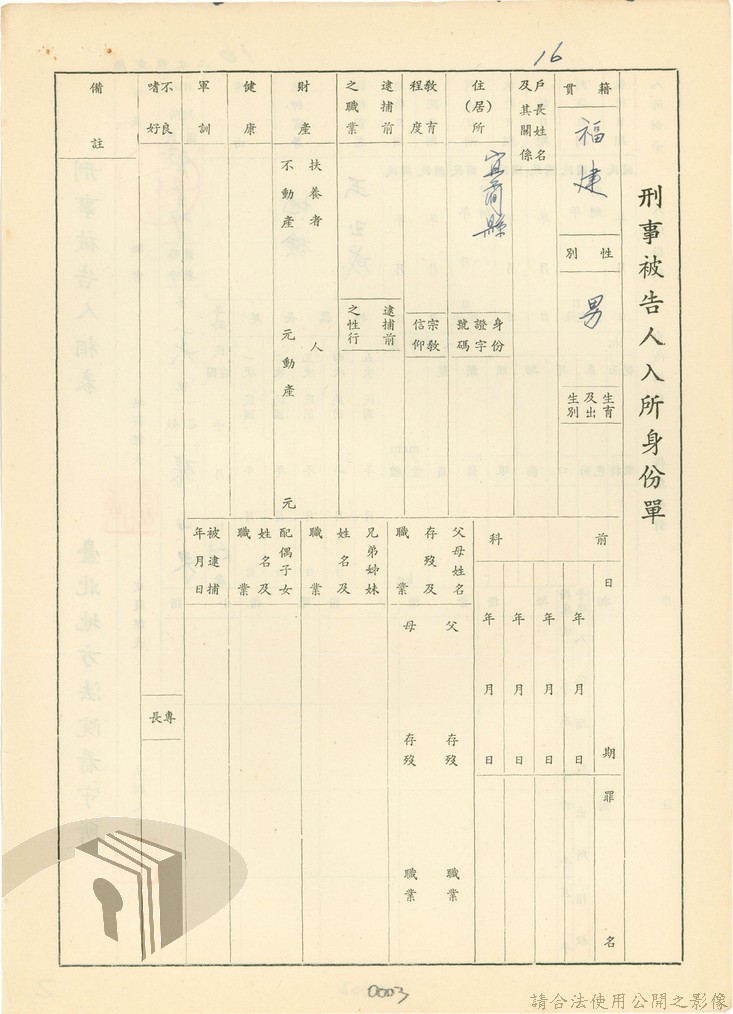 16
刑事被告人入所身份單
籍貫
福建
性別
男
生育及出生別
戶長姓名及其關係
住(居)所
身份證字號碼
教育程度
宗教信仰
逮捕前之職業
逮捕前之性行
財產
扶養者 人
不動產 元動產 元
健康
軍訓
不良嗜好
備註
前科
日期
年月日
年月日
年月日
年月日
罪名
父母姓名存歿及職業
父 存歿 職業
母 存歿 職業
兄弟姊妹姓名及職業
配偶子女姓名及職業
被逮捕年月日
專長
0003
請合法使用公開之影像